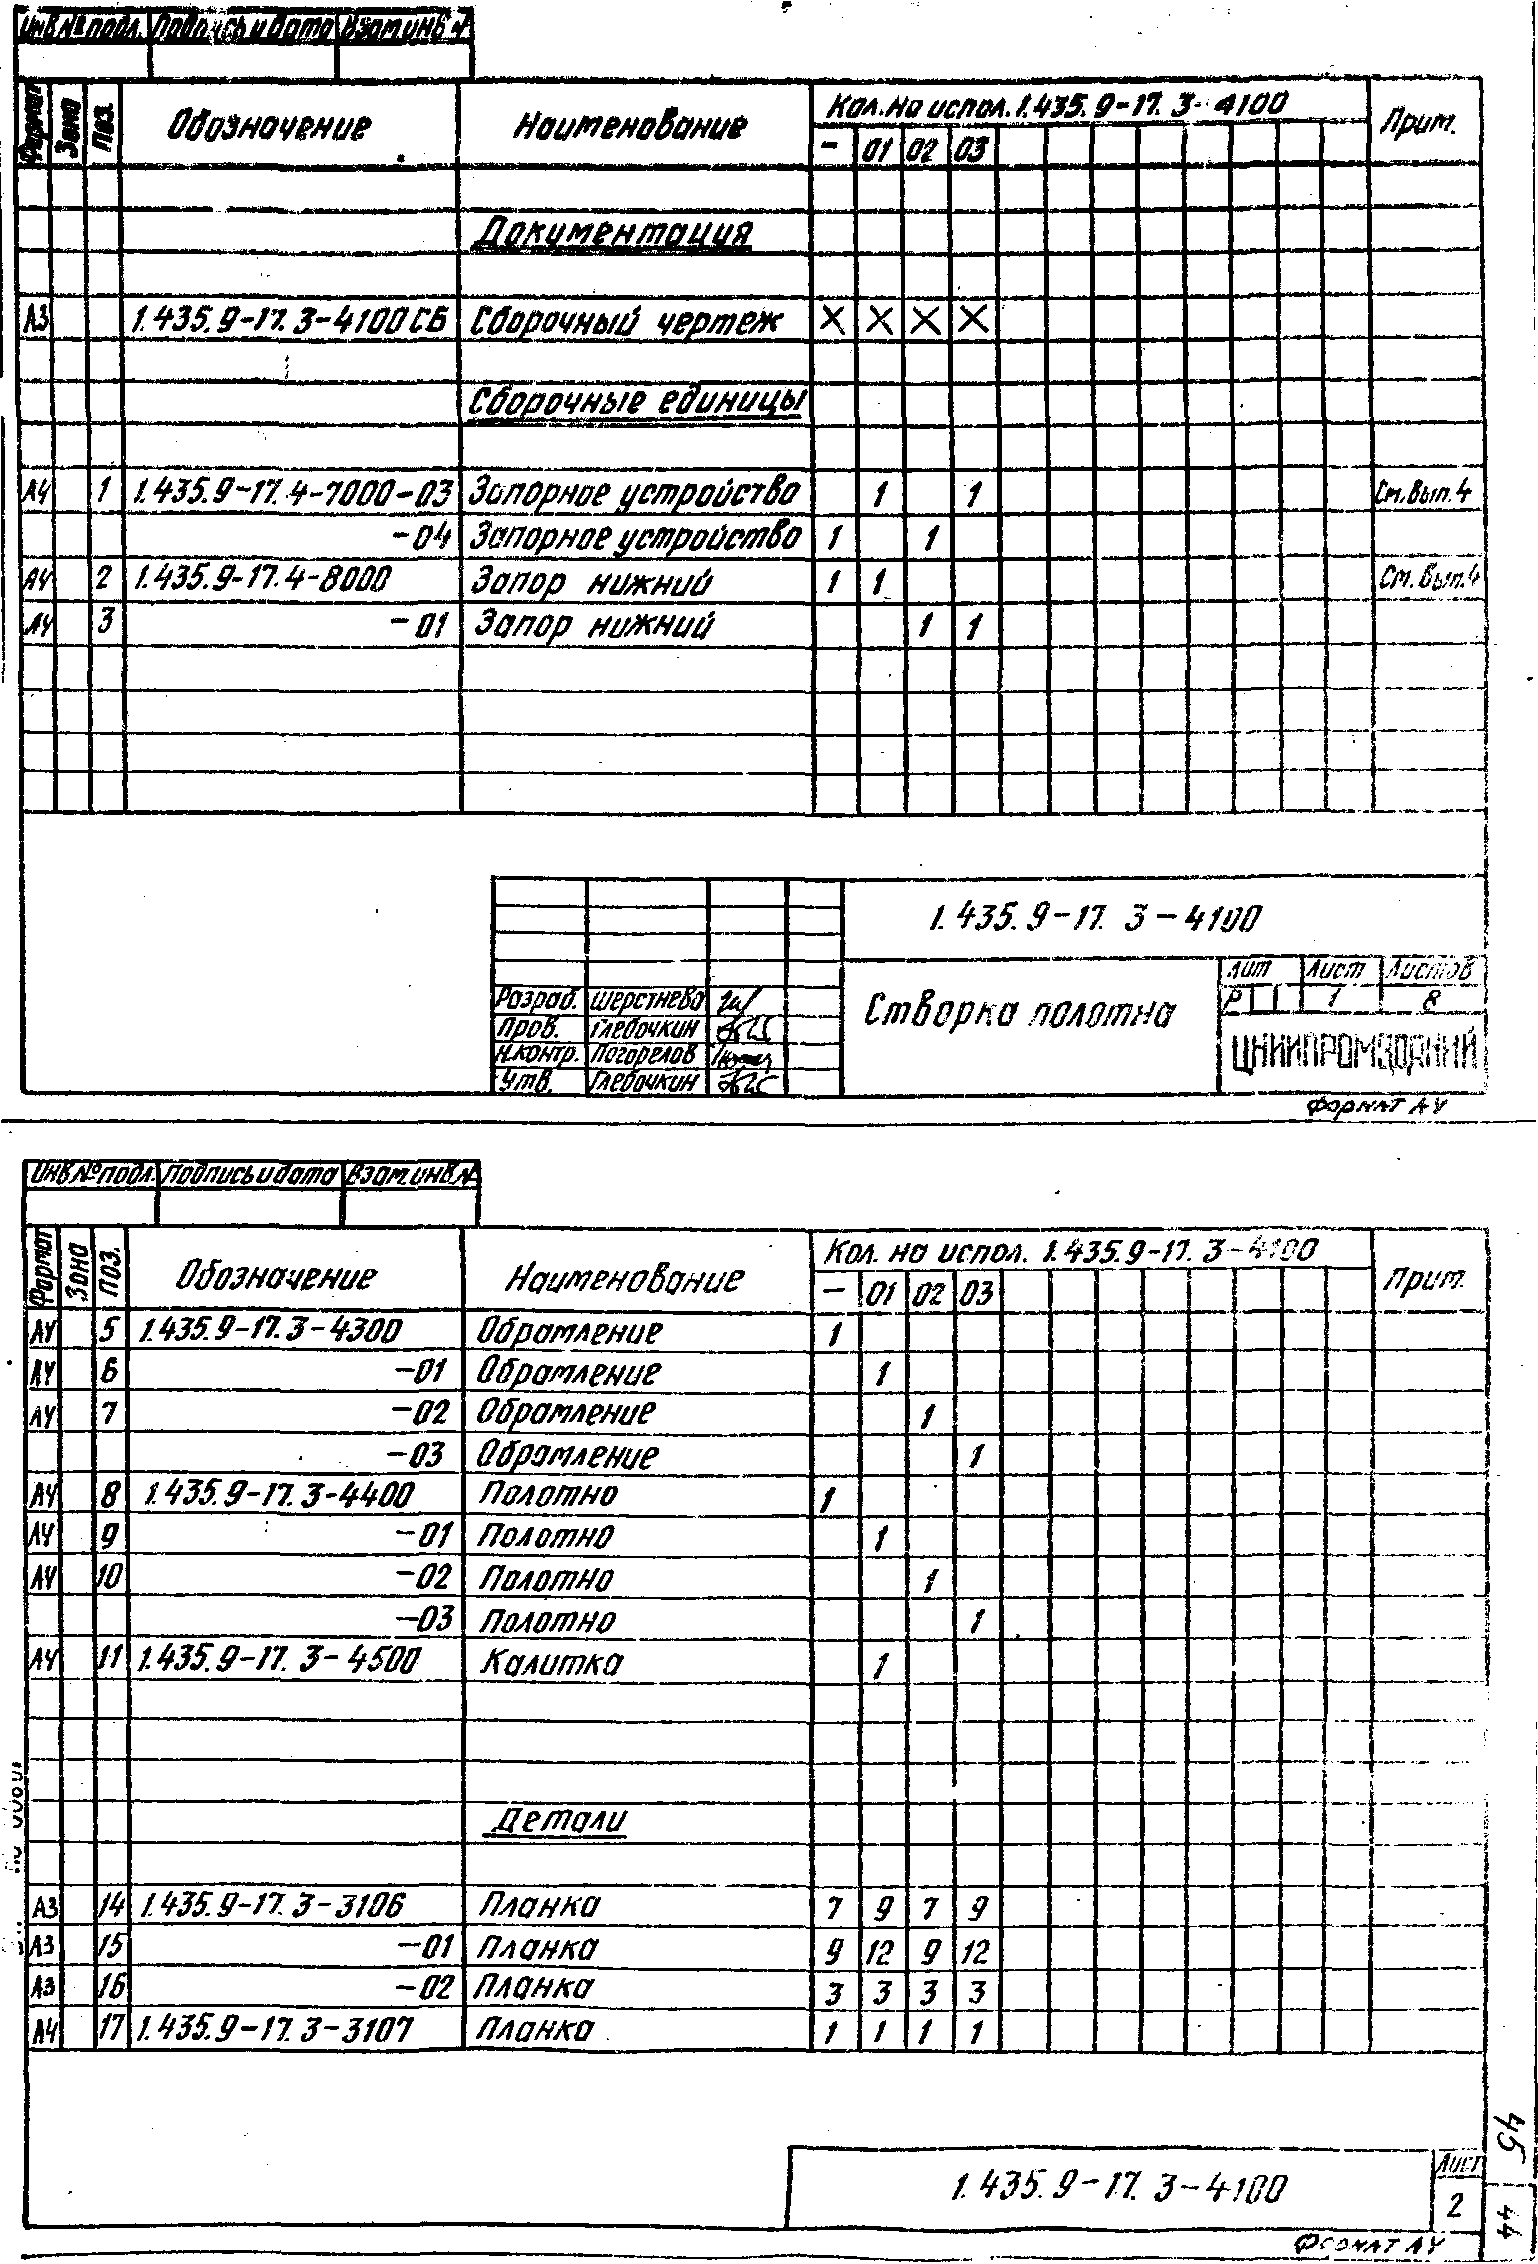 Инв№подл. Подпись и дата Взам инв №
Формат Зона Поз. Обозначение Наименование Кол. на испол. 1.435.9-17.3-4100 Прим.
- 01 02 03
Документация
А3 1.435.9-17.3-4100СБ Сборочный чертеж X X X X
Сборочные единицы
А4 1 1.435.9-17.4-7000-03 Запорное устройство 1 1 См. вып. 4
-04 Запорное устройство 1 1
А4 2 1.435.9-17.4-8000 Запор нижний 1 1 См. вып. 4
А4 3 -01 Запор нижний 1 1
1.435.9-17.3-4100
Разраб. Шерстнева
Пров. Глебочкин
Н.контр. Погорелов
Утв. Глебочкин
Створка полотна
Лит Лист Листов
Р 1 8
ЦНИИПРОМЗДАНИЙ
Формат А4
Инв№подл. Подпись и дата Взам.инв.№
Формат Зона Поз. Обозначение Наименование Кол. на испол. 1.435.9-17.3-4100 Прим.
- 01 02 03
А4 5 1.435.9-17.3-4300 Обрамление 1
А4 6 -01 Обрамление 1
А4 7 -02 Обрамление 1
-03 Обрамление 1
А4 8 1.435.9-17.3-4400 Полотно 1
А4 9 -01 Полотно 1
А4 10 -02 Полотно 1
-03 Полотно 1
А4 11 1.435.9-17.3-4500 Калитка 1
Детали
А3 14 1.435.9-17.3-3106 Планка 7 9 7 9
А3 15 -01 Планка 9 12 9 12
А3 16 -02 Планка 3 3 3 3
А4 17 1.435.9-17.3-3107 Планка 1 1 1 1
1.435.9-17.3-4100
Лист
2
Формат А4
45
44